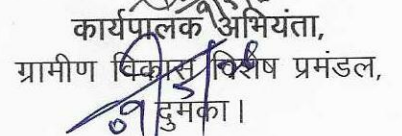 कार्यपालक अभियंता,
ग्रामीण विकास विशेष प्रमंडल,
दुमका।